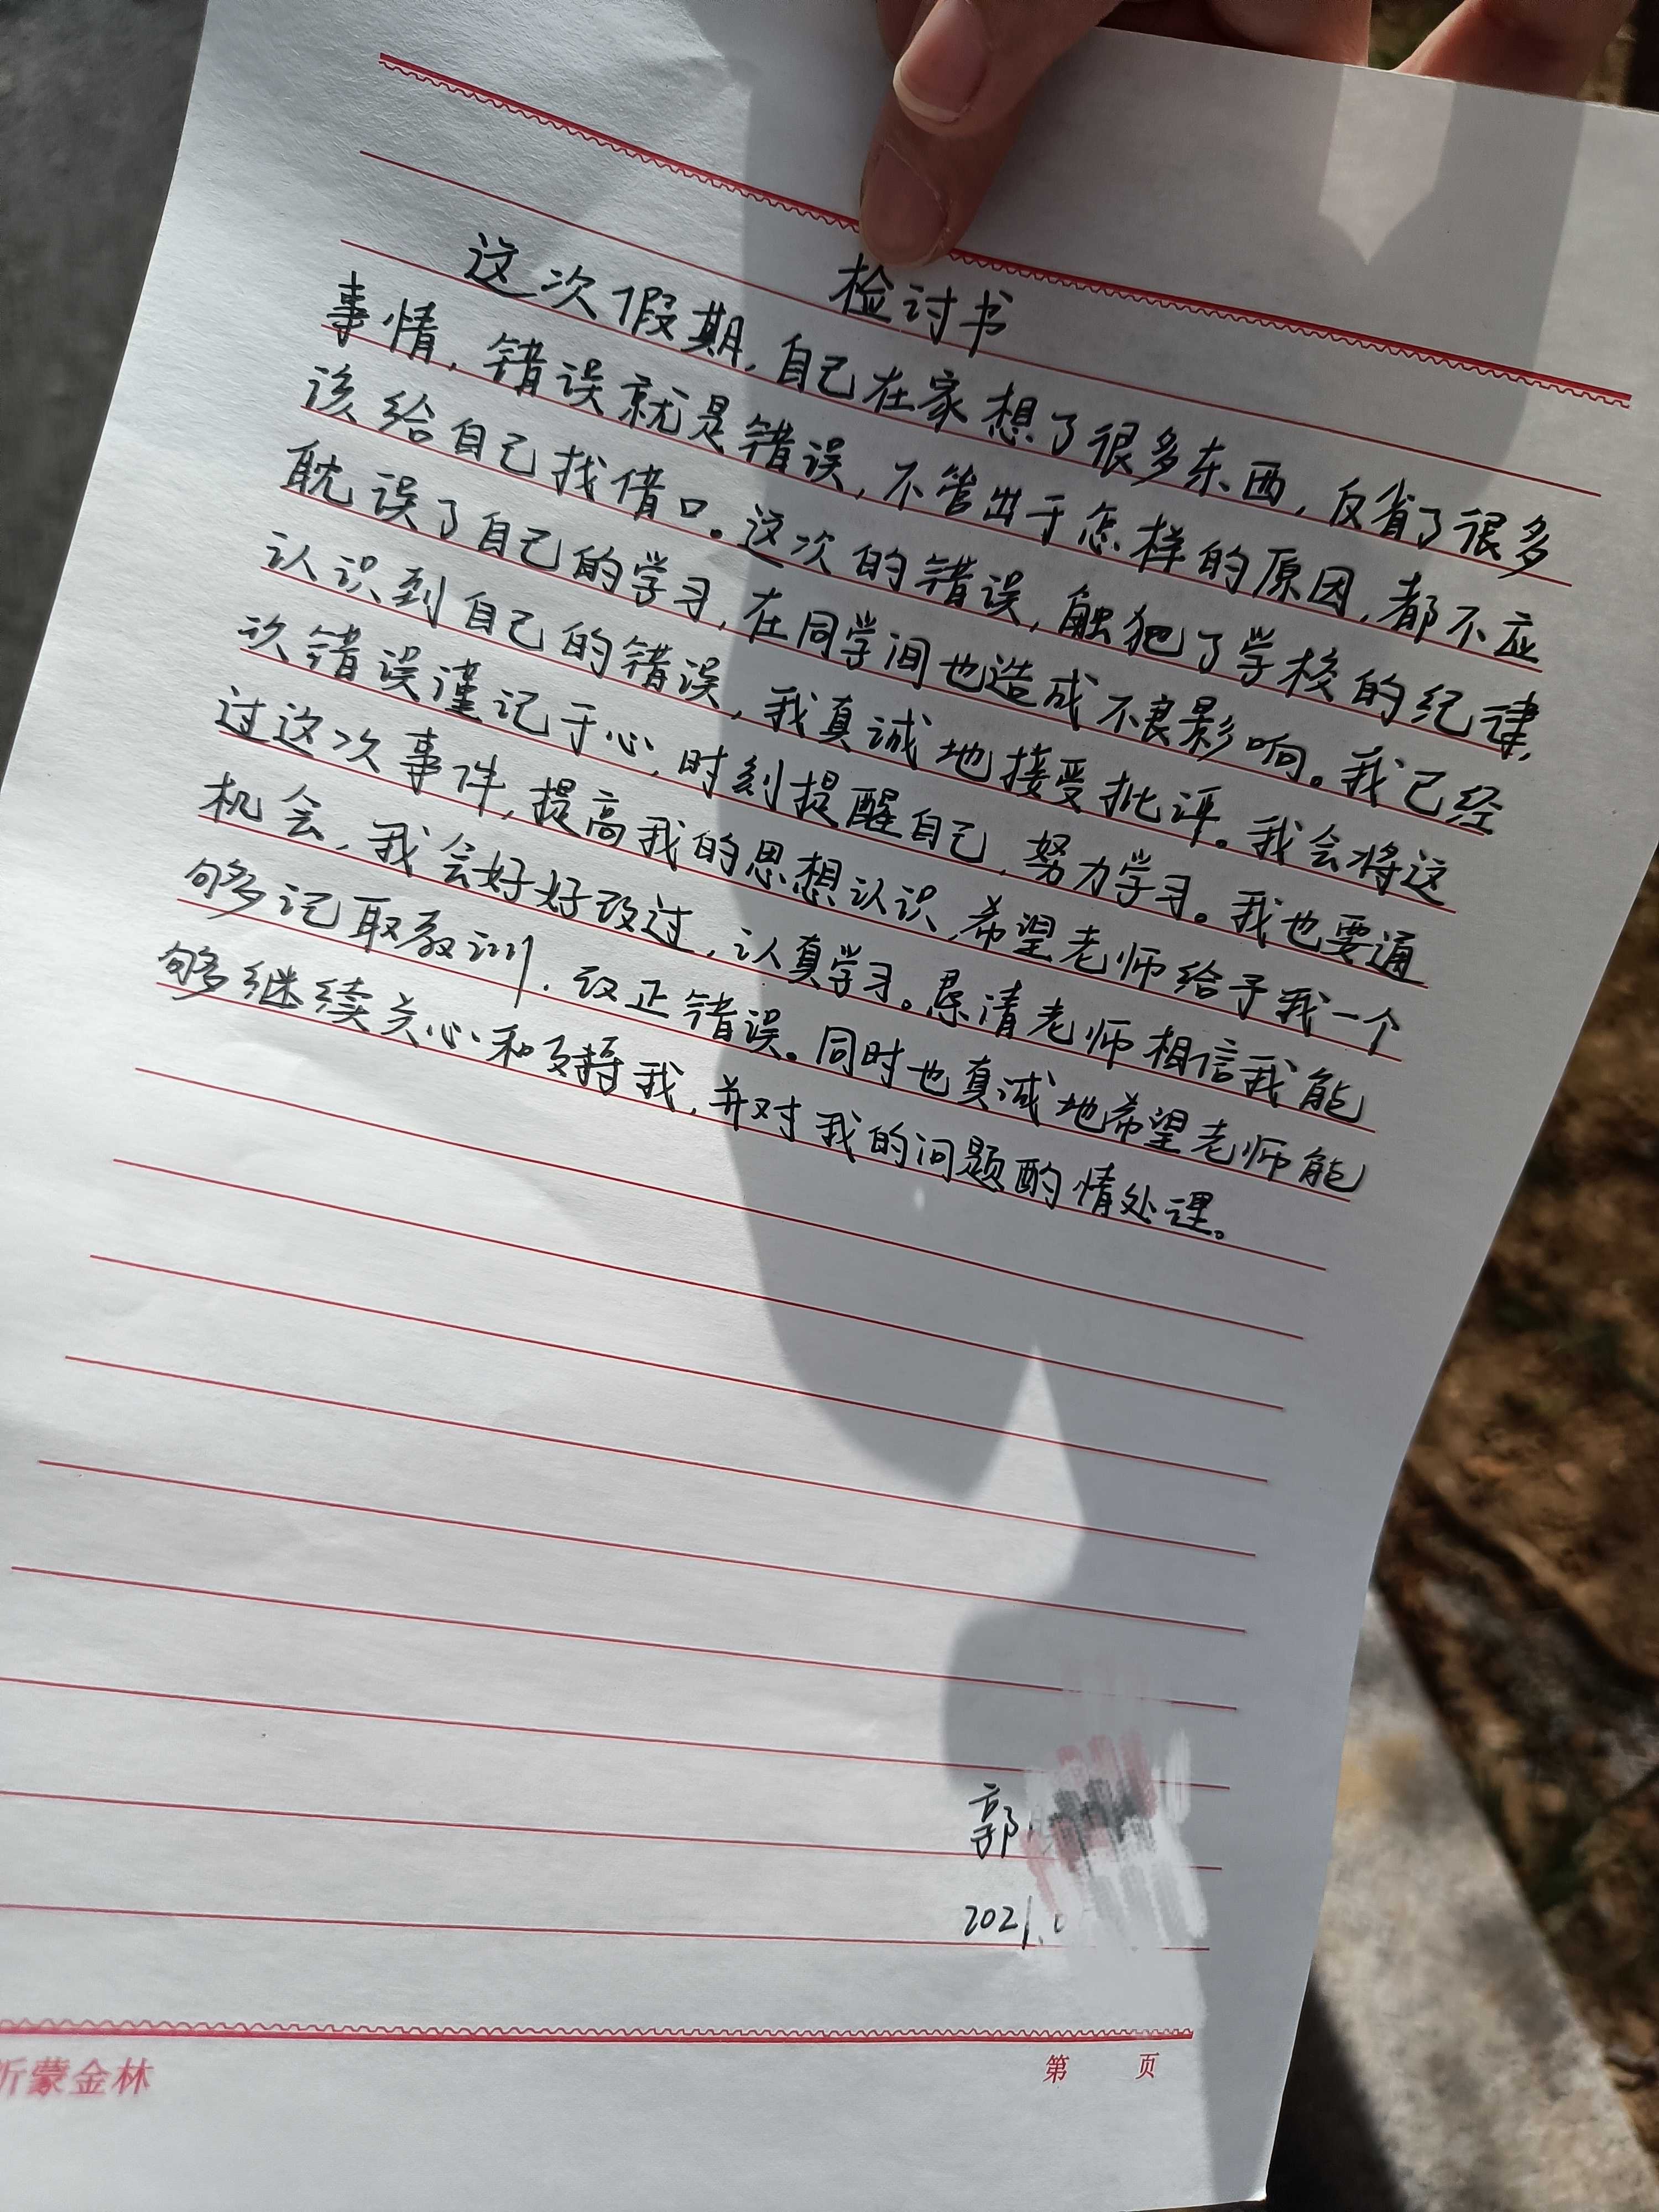 检讨书
这次假期,自己在家想了很多东西,反省了很多
事情,错误就是错误,不管出于怎样的原因,都不应
该给自己找借口。这次的错误,触犯了学校的纪律,
耽误了自己的学习,在同学间也造成不良影响。我已经
认识到自己的错误,我真诚地接受批评。我会将这
次错误谨记于心,时刻提醒自己,努力学习。我也要通
过这次事件,提高我的思想认识,希望老师给予我一个
机会,我会好好改过,认真学习。恳请老师相信我能
够记取教训,改正错误。同时也真诚地希望老师能
够继续关心和支持我,并对我的问题酌情处理。
郭
2021.
沂蒙金林
第 页